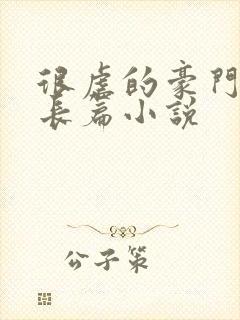 很虐的豪門
長篇小說
公子策